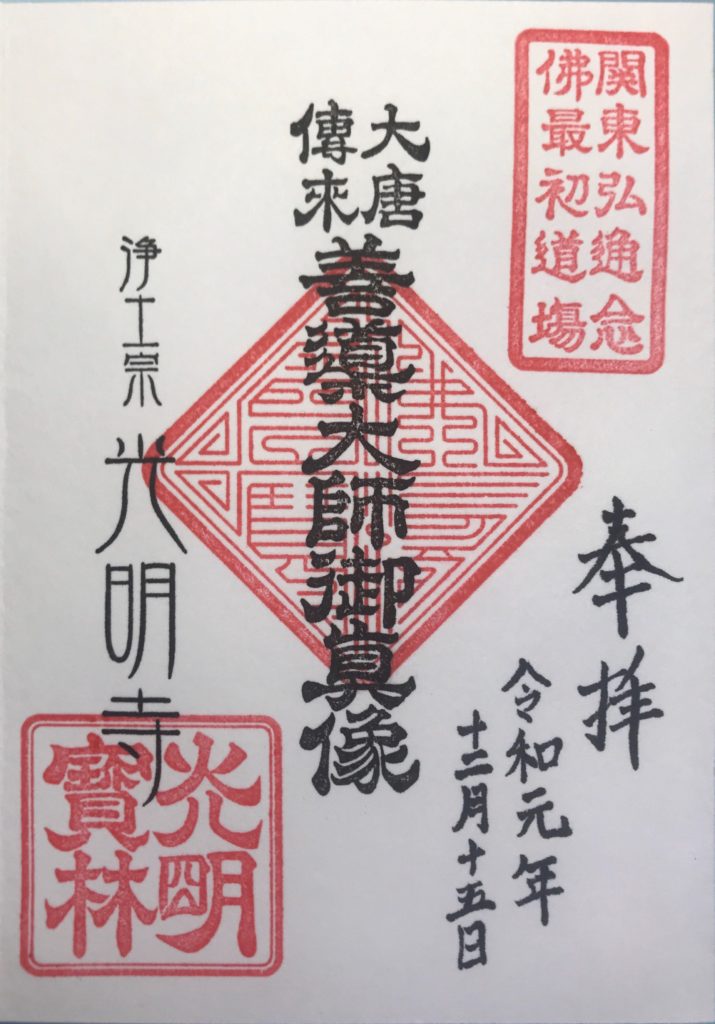 関東弘通念
佛最初道場
奉拝
令和元年
十二月十五日
大唐
傳来
善導大師御真像
浄土宗 光明寺
光明
寳林